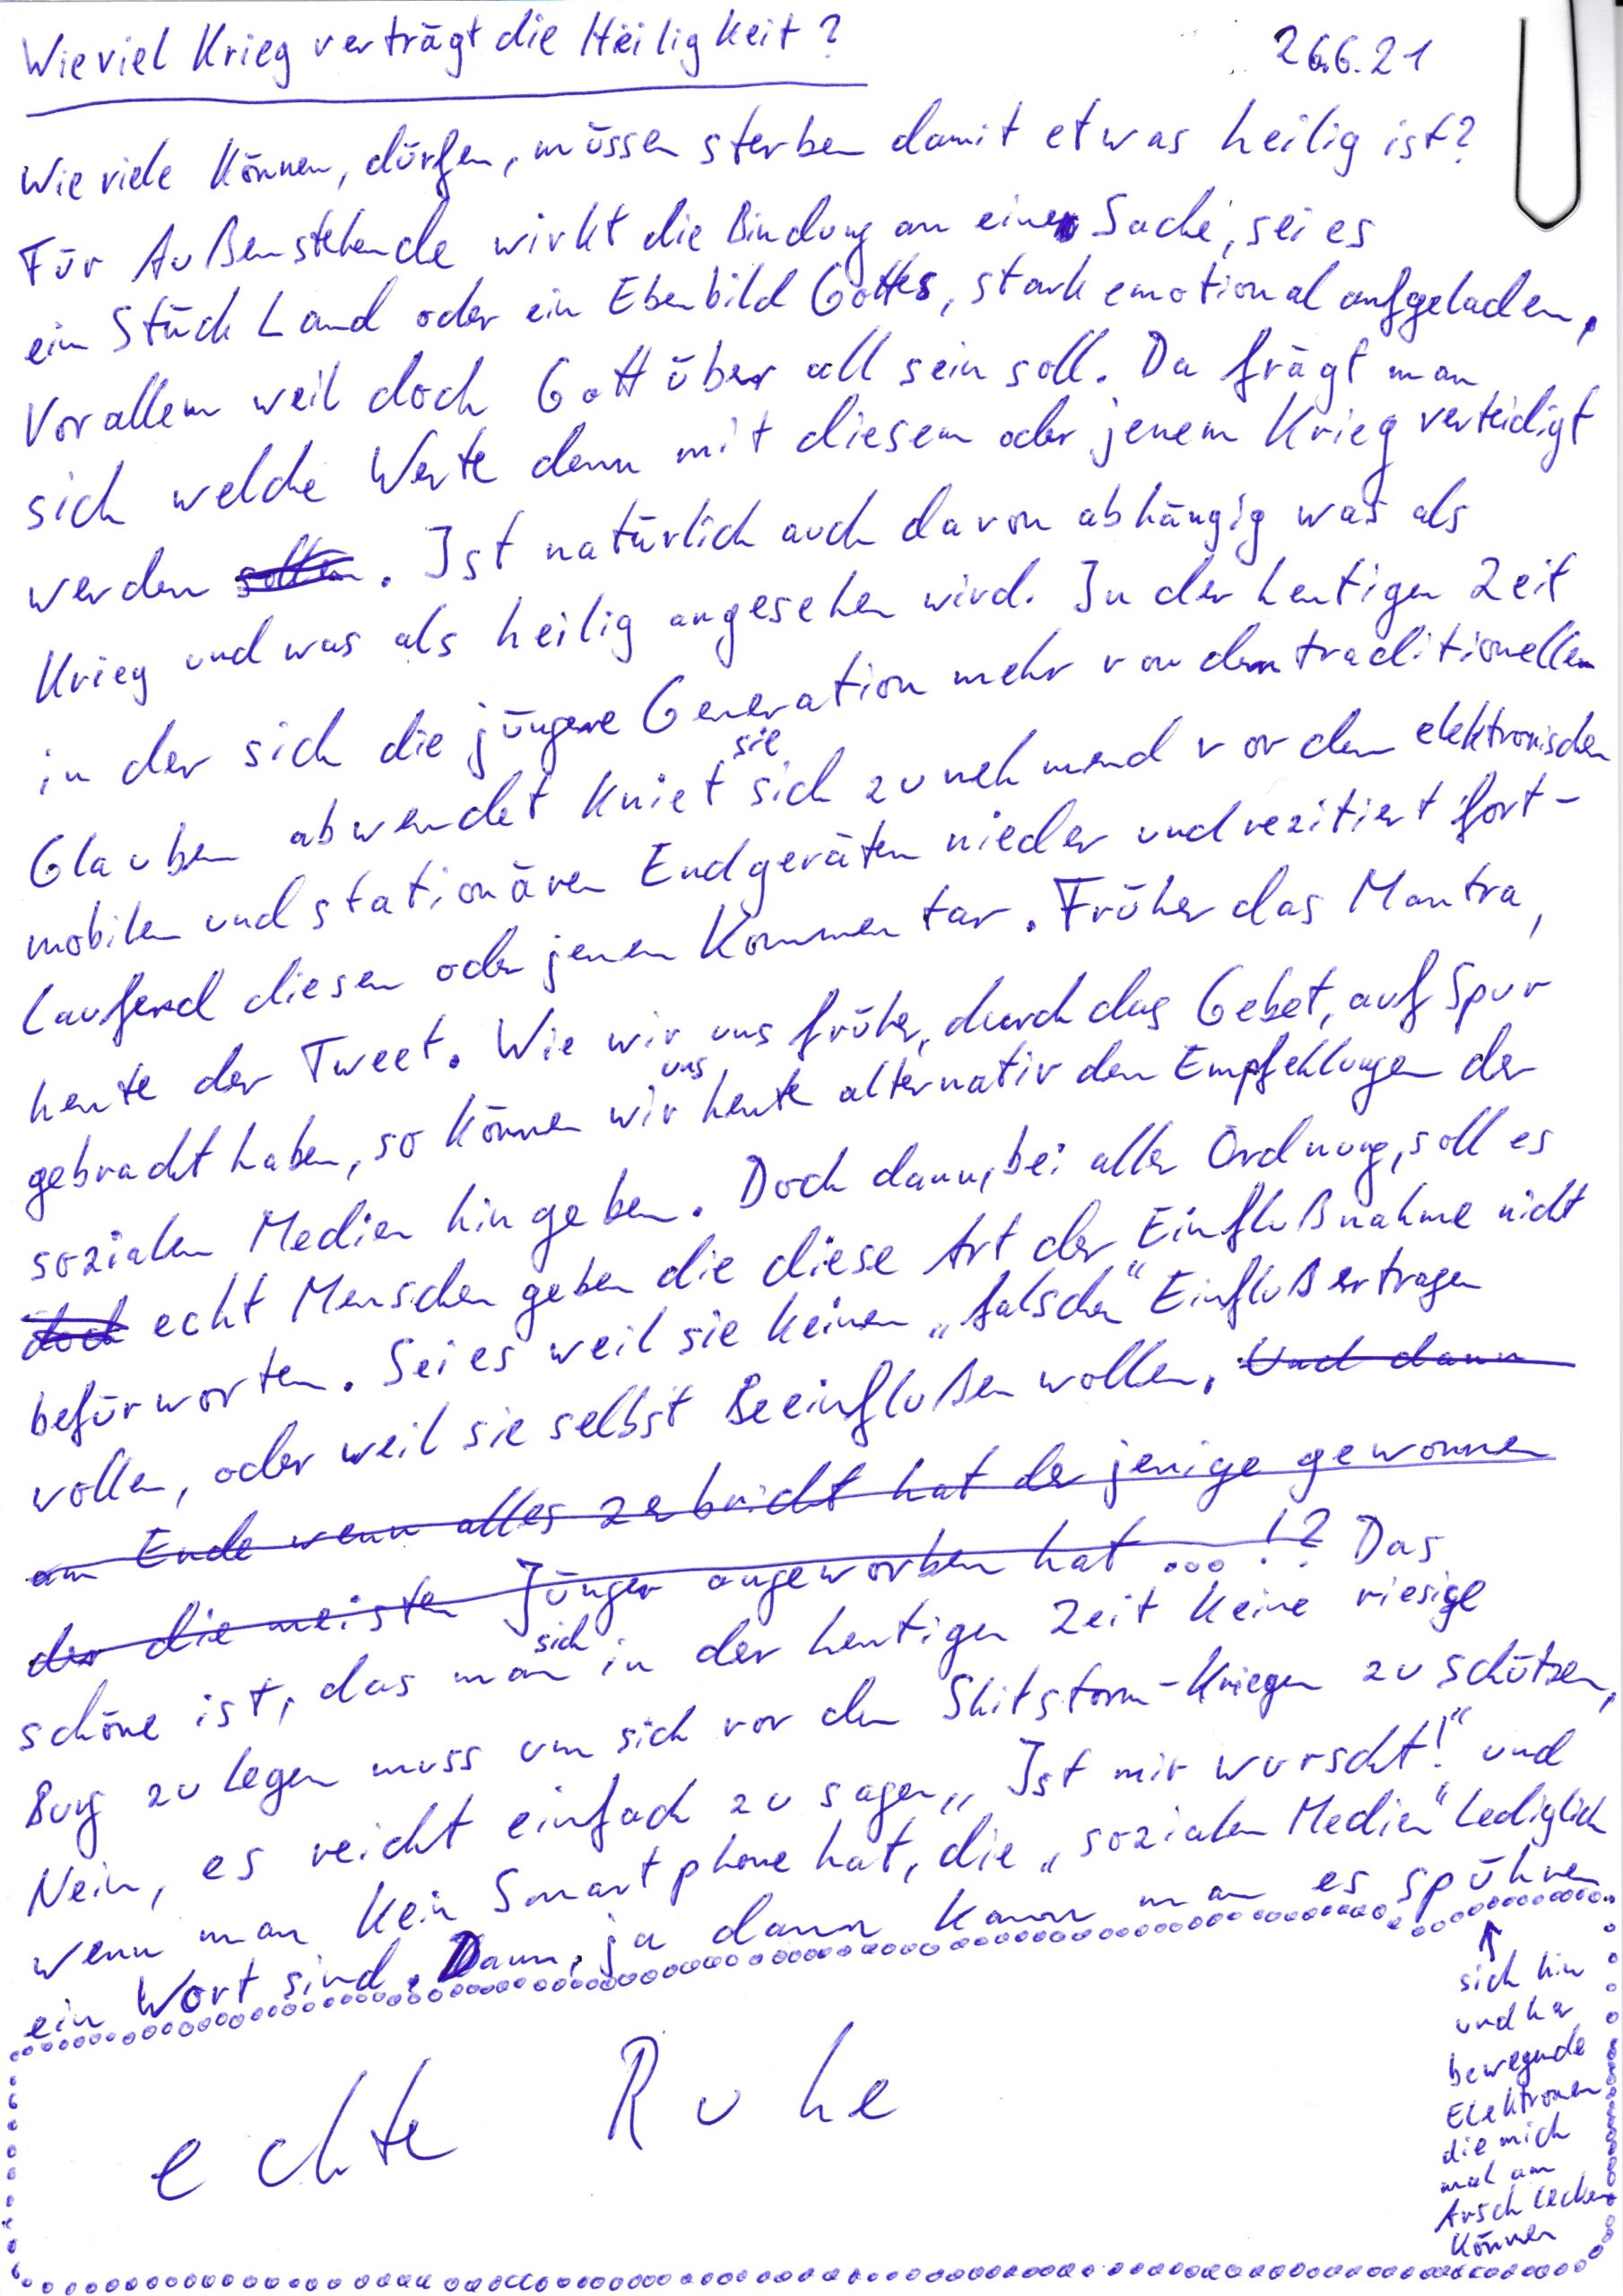 Wieviel Krieg verträgt die Heiligkeit?
26.6.21
Wie viele können, dürfen, müssen sterben damit etwas heilig ist?
Für Außenstehende wirkt die Bindung an eine Sache, sei es
ein Stück Land oder ein Ebenbild Gottes, stark emotional aufgeladen,
Vorallem weil doch Gott über all sein soll. Da frägt man
sich welche Werte denn mit diesem oder jenem Krieg verteidigt
werden sollen. Ist natürlich auch davon abhängig was als
Krieg und was als heilig angesehen wird. In der heutigen Zeit
in der sich die jüngere Generation mehr von dem traditionellen
Glauben abwendet kniet sie sich zunehmend vor den elektronischen
mobilen und stationären Endgeräten nieder und rezitiert fort-
laufend diesen oder jenen Kommentar. Früher das Mantra,
heute der Tweet. Wie wir uns früher, durch das Gebet, auf Spur
gebracht haben, so können wir uns heute alternativ den Empfehlungen der
sozialen Medien hingeben. Doch dann, bei aller Ordnung, soll es
doch echt Menschen geben die diese Art der Einflußnahme nicht
befürworten. Sei es weil sie keinen „falschen“ Einfluß ertragen
wollen, oder weil sie selbst Beeinflußen wollen. Und dann
am Ende wenn alles zerbricht hat der jenige gewonnen
der die meisten Jünger angeworben hat ... !? Das
schöne ist, das man sich in der heutigen Zeit keine riesige
Burg zu legen muss um sich vor den Shitstorm-Kriegen zu schützen,
Nein, es reicht einfach zu sagen „Ist mir wurscht!“ und
wenn man kein Smartphone hat, die „sozialen Medien“ lediglich
ein Wort sind. Dann, ja dann kann man es spühren
echte Ruhe
↑
sich hin
und her
bewegende
Elektronen
die mich
mal am
Arsch lecken
können